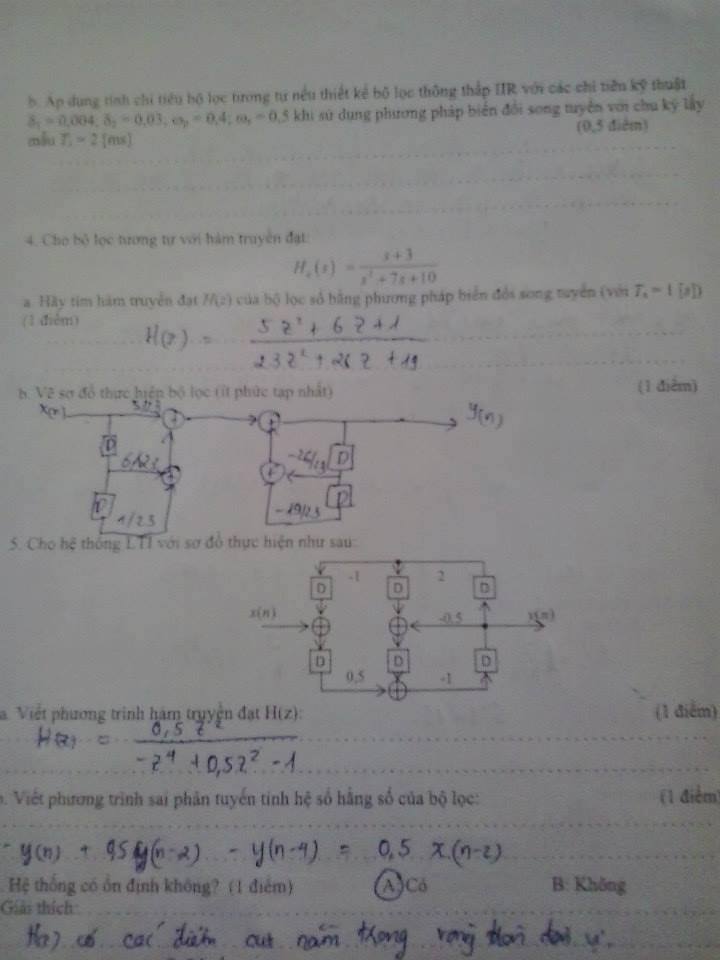 b. Áp dụng tính chỉ tiêu bộ lọc tương tự nếu thiết kế bộ lọc thông thấp IIR với các chỉ tiêu kỹ thuật
δ₁ = 0,004; δ₂ = 0,03; ωₚ = 0,4; ωₛ = 0,5 khi sử dụng phương pháp biến đổi song tuyến với chu kỳ lấy
mẫu Tₛ = 2 [ms] (0,5 điểm)
4. Cho bộ lọc tương tự với hàm truyền đạt:
Hₐ(s) = (s + 3)/(s² + 7s + 10)
a. Hãy tìm hàm truyền đạt H(z) của bộ lọc số bằng phương pháp biến đổi song tuyến (với Tₛ = 1 [s])
(1 điểm)
H(z) = (5z² + 6z + 1)/(23z² + 26z + 19)
b. Vẽ sơ đồ thực hiện bộ lọc (ít phức tạp nhất) (1 điểm)
x(n) 5/23 + + y(n)
D 6/23 + + -26/23 D
D 1/23 -19/23 D
5. Cho hệ thống LTI với sơ đồ thực hiện như sau:
-1 2
D D D
x(n) -0,5 y(n)
D D D
0,5 -1
a. Viết phương trình hàm truyền đạt H(z): (1 điểm)
H(z) = (0,5z²)/(-z⁴ + 0,5z² - 1)
b. Viết phương trình sai phân tuyến tính hệ số hằng số của bộ lọc: (1 điểm)
- y(n) + 0,5y(n-2) - y(n-4) = 0,5 x(n-2)
. Hệ thống có ổn định không? (1 điểm) A: Có B: Không
Giải thích:
H(z) có các điểm cực nằm trong vòng tròn đơn vị.